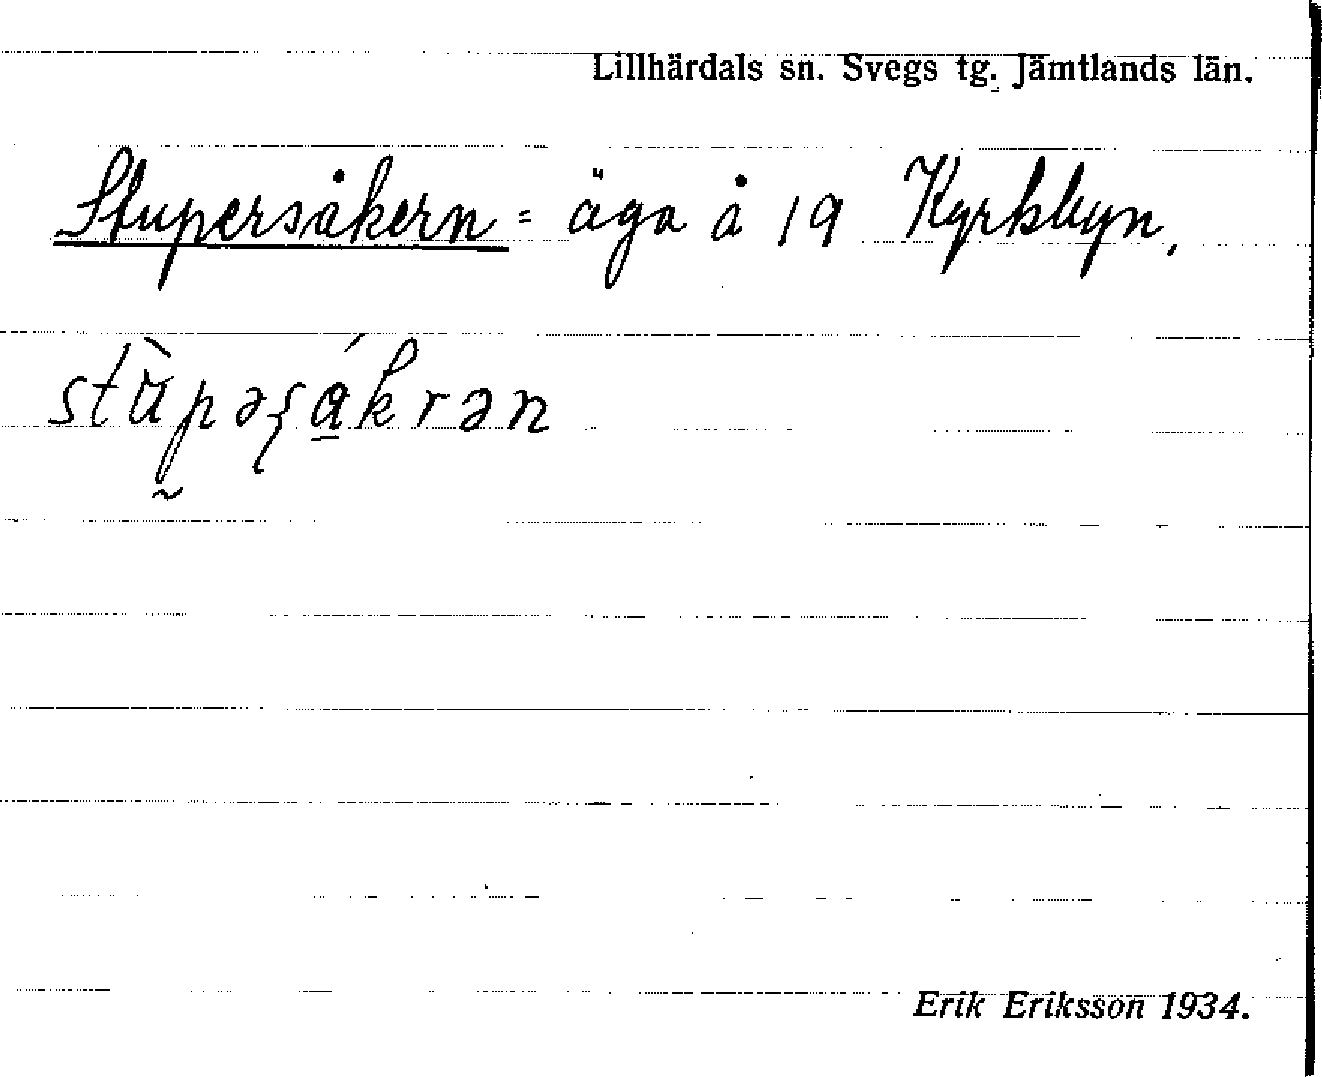 Lillhärdals sn. Svegs tg. Jämtlands län.
Stupersåkern = äga å 19 Kyrkbyn.
stùpəʂákrən
Erik Eriksson 1934.